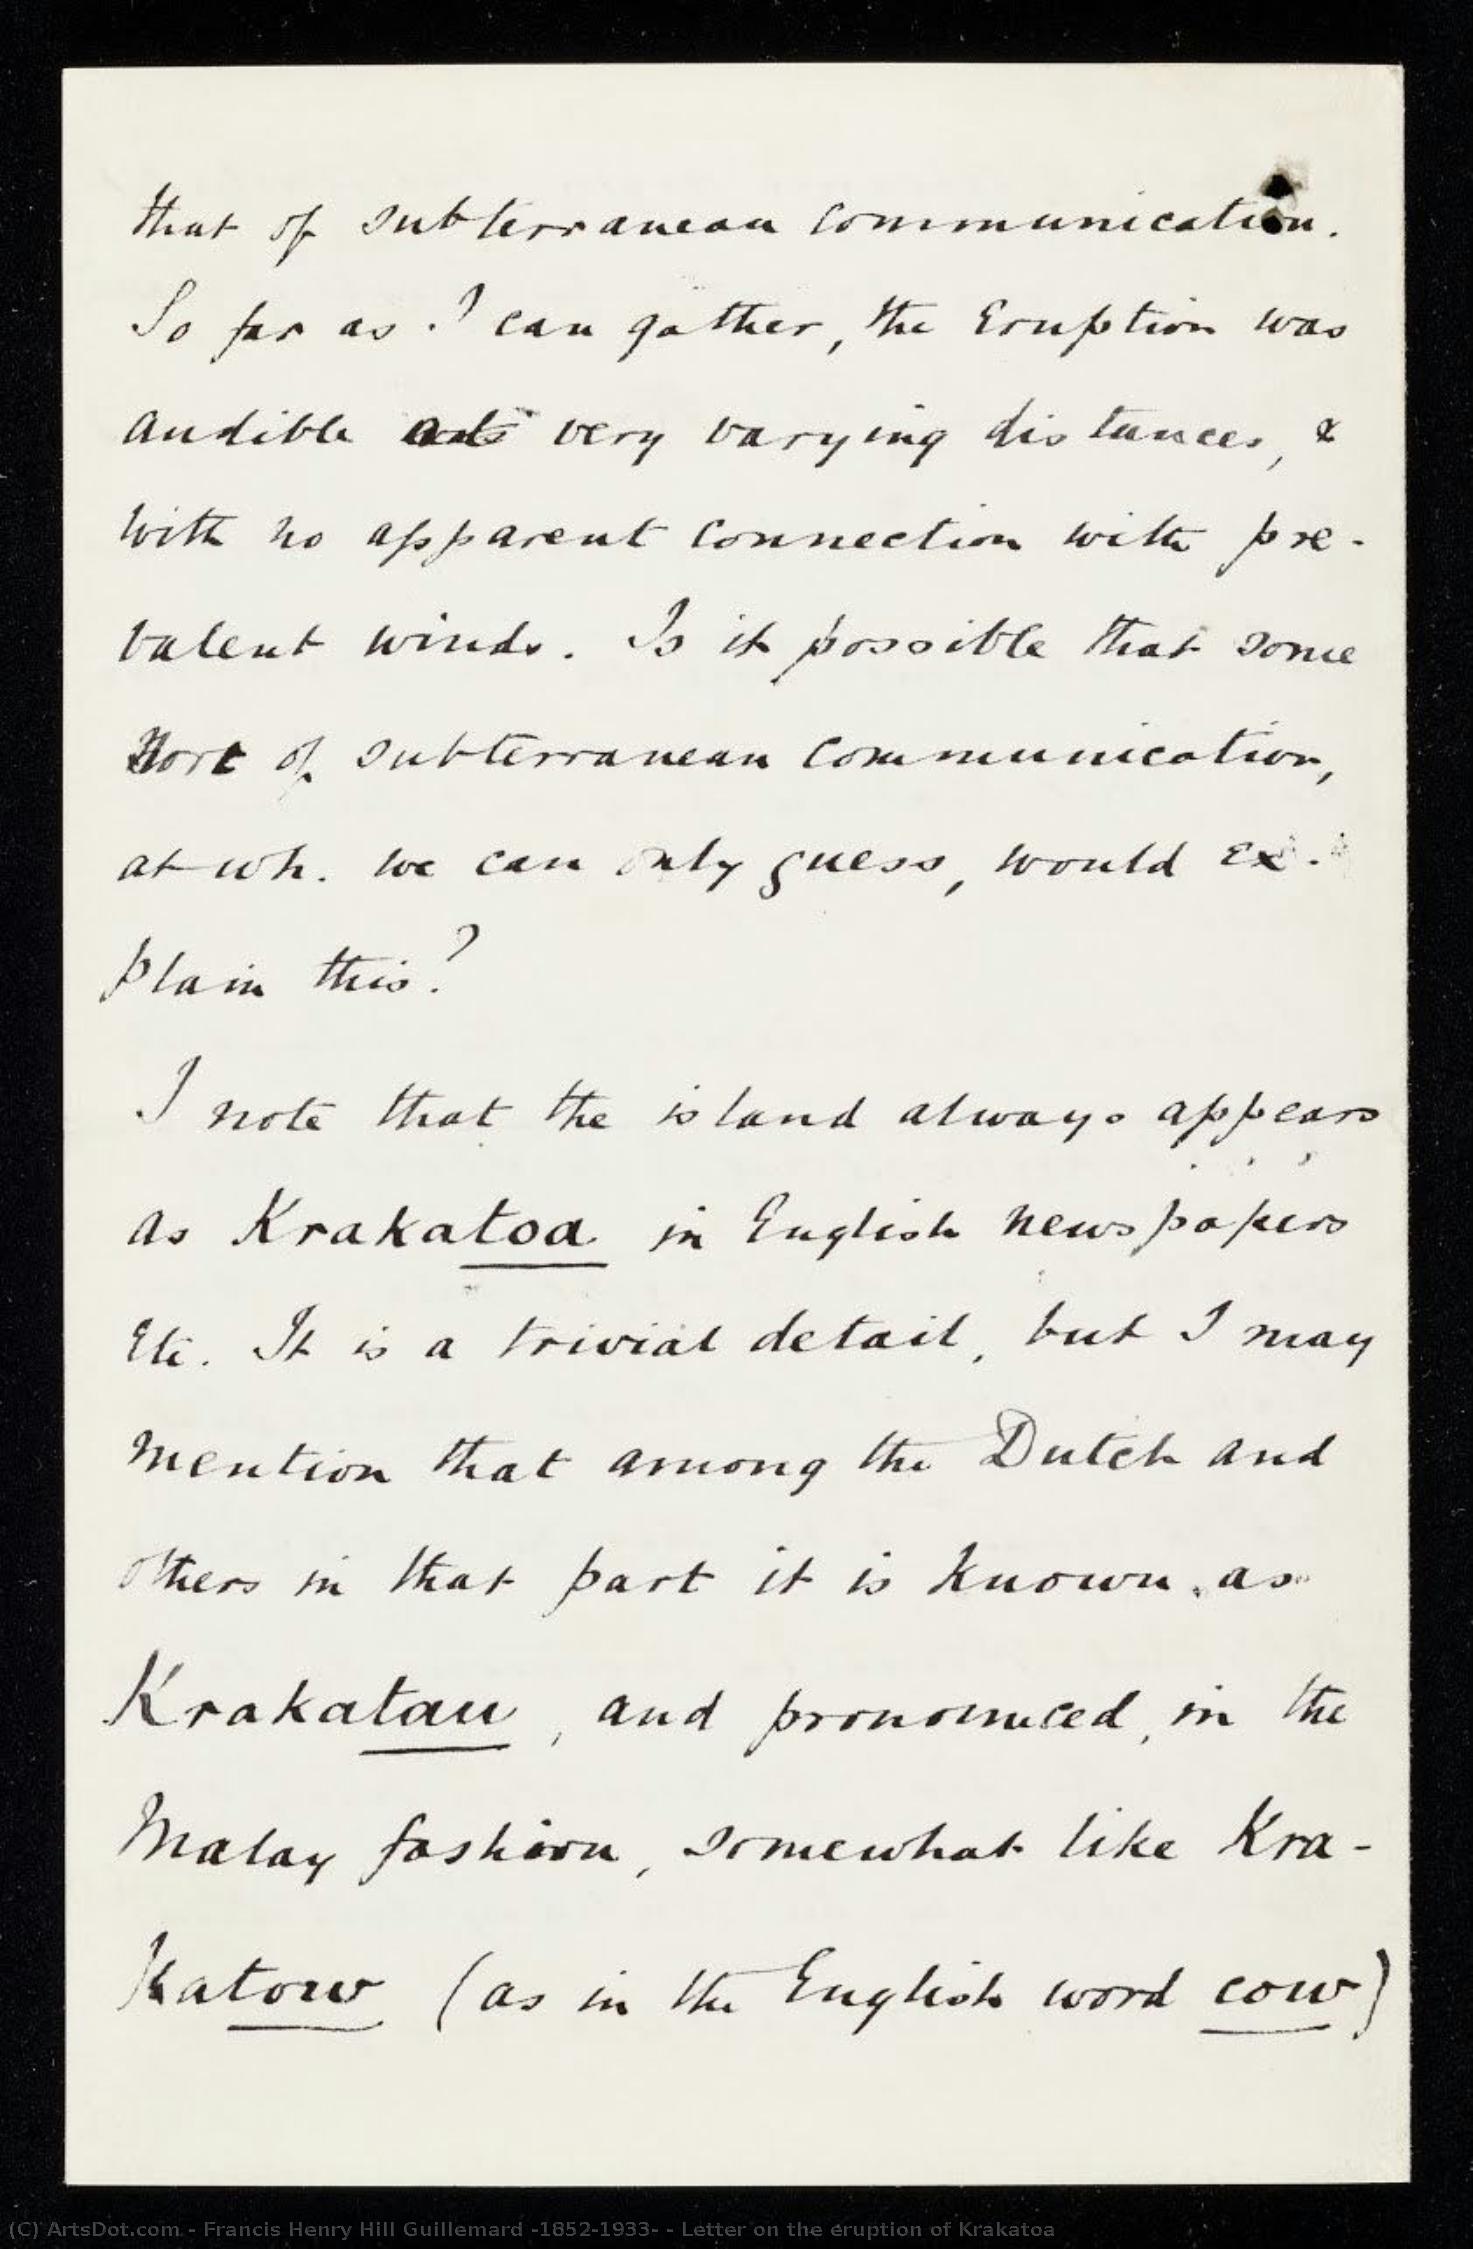 that of subterranean communication.
So far as I can gather, the Eruption was
audible at very varying distances, &
with no apparent connection with pre-
valent winds. Is it possible that some
sort of subterranean communication,
at wh. we can only guess, would ex-
plain this?
I note that the island always appears
as Krakatoa in English newspapers
Etc. It is a trivial detail, but I may
mention that among the Dutch and
others in that part it is known as
Krakatau, and pronounced, in the
Malay fashion, somewhat like Kra-
katow (as in the English word cow)
(C) ArtsDot.com - Francis Henry Hill Guillemard -1852-1933- - Letter on the eruption of Krakatoa